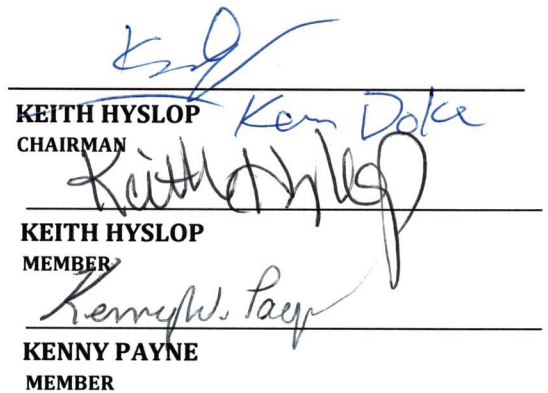 KEITH HYSLOP Ken Doke
CHAIRMAN
Keith Hyslop
KEITH HYSLOP
MEMBER
Kenny W. Payne
KENNY PAYNE
MEMBER